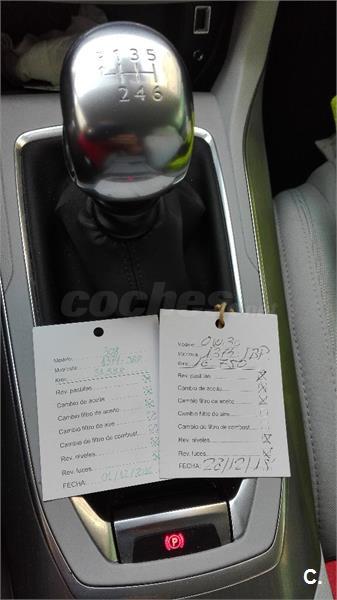 1 3 5
2 4 6
coches
Modelo:
Matrícula:
Kms:
Rev. pastillas
Cambio de aceite
Cambio filtro de aceite
Cambio filtro de aire
Cambio filtro de combust.
Rev. niveles
Rev. luces
FECHA:
Modelo: OW30
Matrícula:
Kms:
Rev. pastillas
Cambio de aceite
Cambio filtro de aceite
Cambio filtro de aire
Cambio filtro de combust.
Rev. niveles
Rev. luces
FECHA: 28/12/15
P
C.